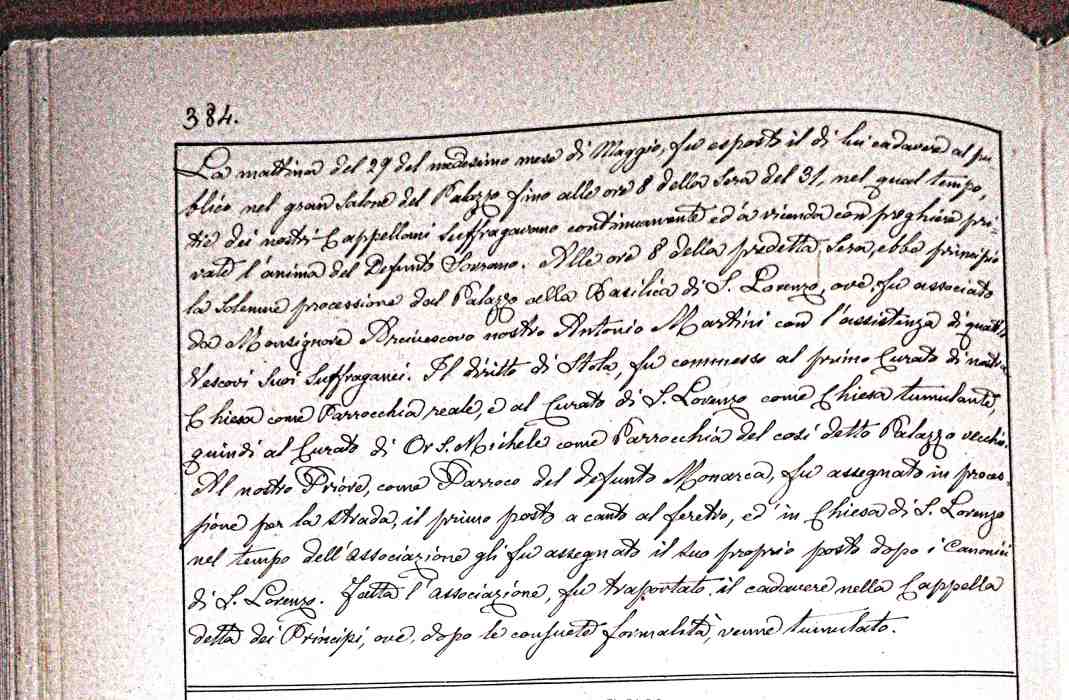 384.
La mattina del 29 del medesimo mese di Maggio, fu esposto il di lui cadavere al pu
blico nel gran Salone del Palazzo fino alle ore 8 della Sera del 31, nel qual tempo,
dei nostri Cappellani Suffragavano continuamente ed a vicenda con preghiere pri-
vate l'anima del Defunto Sovrano. Alle ore 8 della predetta Sera, ebbe principio
la Solenne processione dal Palazzo alla Basilica di S. Lorenzo, ove fu associato
da Monsignore Arcivescovo nostro Antonio Martini con l'assistenza di quattro
Vescovi Suoi Suffraganei. Il diritto di Stola, fu commesso al primo Curato di nostra
Chiesa come Parrocchia reale, e al Curato di S. Lorenzo come Chiesa tumulante,
quindi al Curato di Or S. Michele come Parrocchia del così detto Palazzo vecchio.
Al nostro Priore, come Parroco del defunto Monarca, fu assegnato in proces-
sione per la strada, il primo posto a canto al feretro, ed in Chiesa di S. Lorenzo
nel tempo dell'associazione gli fu assegnato il suo proprio posto dopo i Canonici
di S. Lorenzo. Fatta l'associazione, fu trasportato il cadavere nella Cappella
detta dei Principi, ove, dopo le consuete formalità, venne tumulato.